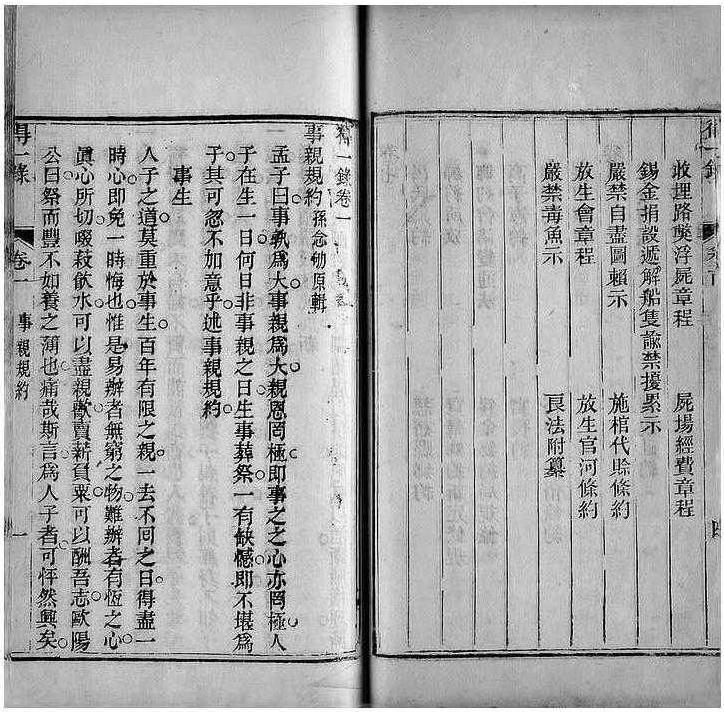 收埋路斃浮屍章程　屍場經費章程
錫金捐設遞解船隻諭禁擾累示
嚴禁自盡圖賴示　施棺代賒條約
放生會章程　放生官河條約
嚴禁毒魚示　良法附纂
得一錄卷一
事親規約 孫念劬原輯
一孟子曰事孰爲大事親爲大親恩罔極即事之之心亦罔極人
子在生一日何日非事親之日生事葬祭一有缺憾即不堪爲
子其可忽不加意乎述事親規約
事生
人子之道莫重於事生百年有限之親一去不回之日得盡一
時心即免一時悔也惟是易辦者無窮之物難辦者有恆之心
眞心所切啜菽飲水可以盡親歡賣薪負粟可以酬吾志歐陽
公曰祭而豐不如養之薄也痛哉斯言爲人子者可怦然興矣
得一錄 卷一 事親規約 一